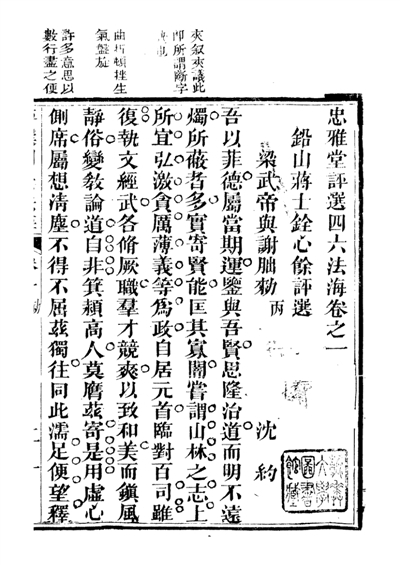 忠雅堂評選四六法海卷之一
鉛山蔣士銓心餘評選
梁武帝與謝朏勑 丙
沈約
夾叙夾議此
卽所謂斷字
吾以菲德屬當期運鑒與吾賢思隆治道而明不遠
燭所蔽者多實寄賢能匡其寡闇嘗謂山林之志上
所宜弘激貪厲薄義等為政自居元首臨對百司雖
曲折頓挫生
氣盤旋
復執文經武各脩厥職羣才競爽以致和美而鎭風
靜俗變敎論道自非箕潁高人莫膺茲寄是用虛心
許多意思以
數行盡之便
側席屬想清塵不得不屈茲獨往同此濡足便望釋